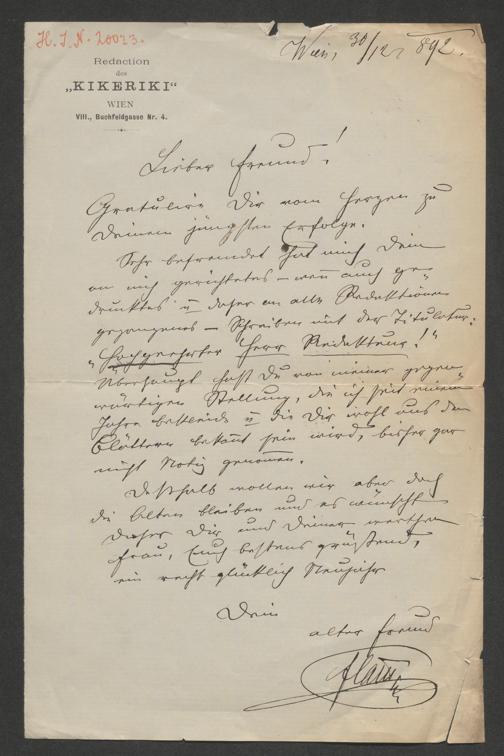 H. I. N. 20023.
Redaction
des
„KIKERIKI“
WIEN
VIII., Buchfeldgasse Nr. 4.
Wien, 30/12 892.
Lieber Freund!
Gratulire Dir vom Herzen zu
Deinem jüngsten Erfolge.
Sehr befremdet hat mich Dein
an mich gerichtetes – wenn auch ge-
drucktes u daher an alle Redaktionen
gegangenes – Schreiben mit der Titulatur:
„Hochgeehrter Herr Redakteur!“
Überhaupt hast Du von meiner gegen-
wärtigen Stellung, die ich seit einem
Jahre bekleide u die Dir wohl aus den
Blättern bekannt sein wird, bisher gar
nicht Notiz genommen.
Deßhalb wollen wir aber doch
die Alten bleiben und es wünscht
daher Dir und Deiner werthen
Frau, Euch bestens grüßend,
ein recht glücklich Neujahr
Dein
alter Freund